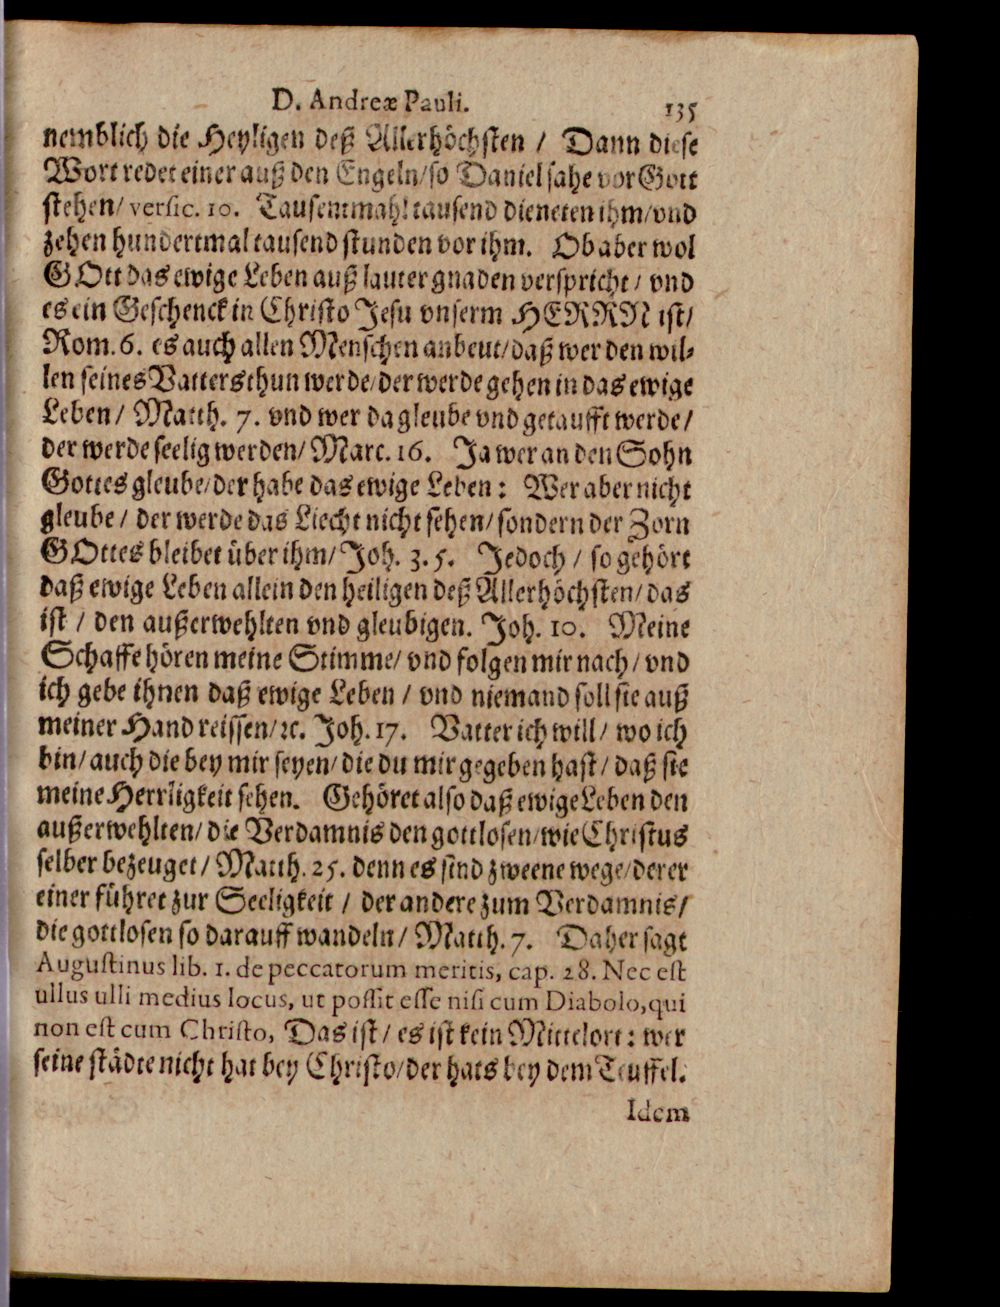 D. Andreæ Pauli. 135
nemblich die Heyligen deß Allerhöchsten / Dann diese
Wort redet einer auß den Engeln/so Daniel sahe vor Gott
stehen/ versic. 10. Tausentmahl tausend dieneten ihm/vnd
zehen hundertmal tausend stunden vor ihm. Ob aber wol
GOtt das ewige Leben auß lauter gnaden verspricht/ vnd
es ein Geschenck in Christo Jesu vnserm HERRN ist/
Rom. 6. es auch allen Menschen anbeut/daß wer den wil-
len seines Vatters thun werde/der werde gehen in das ewige
Leben/ Matth. 7. vnd wer da gleube vnd getaufft werde/
der werde seelig werden/ Marc. 16. Ja wer an den Sohn
Gottes gleube/der habe das ewige Leben: Wer aber nicht
gleube / der werde das Liecht nicht sehen/ sondern der Zorn
GOttes bleibet über ihm/ Joh. 3. 5. Jedoch / so gehört
daß ewige Leben allein den heiligen deß Allerhöchsten/ das
ist / den außerwehlten vnd gleubigen. Joh. 10. Meine
Schaffe hören meine Stimme/ vnd folgen mir nach/ vnd
ich gebe ihnen daß ewige Leben / vnd niemand soll sie auß
meiner Hand reissen/ꝛc. Joh. 17. Vatter ich will/ wo ich
bin/ auch die bey mir seyen/ die du mir gegeben hast/ daß sie
meine Herrligkeit sehen. Gehöret also daß ewige Leben den
außerwehlten/ die Verdamnis den gottlosen/wie Christus
selber bezeuget/ Matth. 25. denn es sind zweene wege/derer
einer führet zur Seeligkeit / der andere zum Verdamnis/
die gottlosen so darauff wandeln/ Matth. 7. Daher sagt
Augustinus lib. 1. de peccatorum meritis, cap. 28. Nec est
ullus ulli medius locus, ut possit esse nisi cum Diabolo, qui
non est cum Christo, Das ist/ es ist kein Mittelort: wer
seine städte nicht hat bey Christo/der hats bey dem Teuffel.
Idem